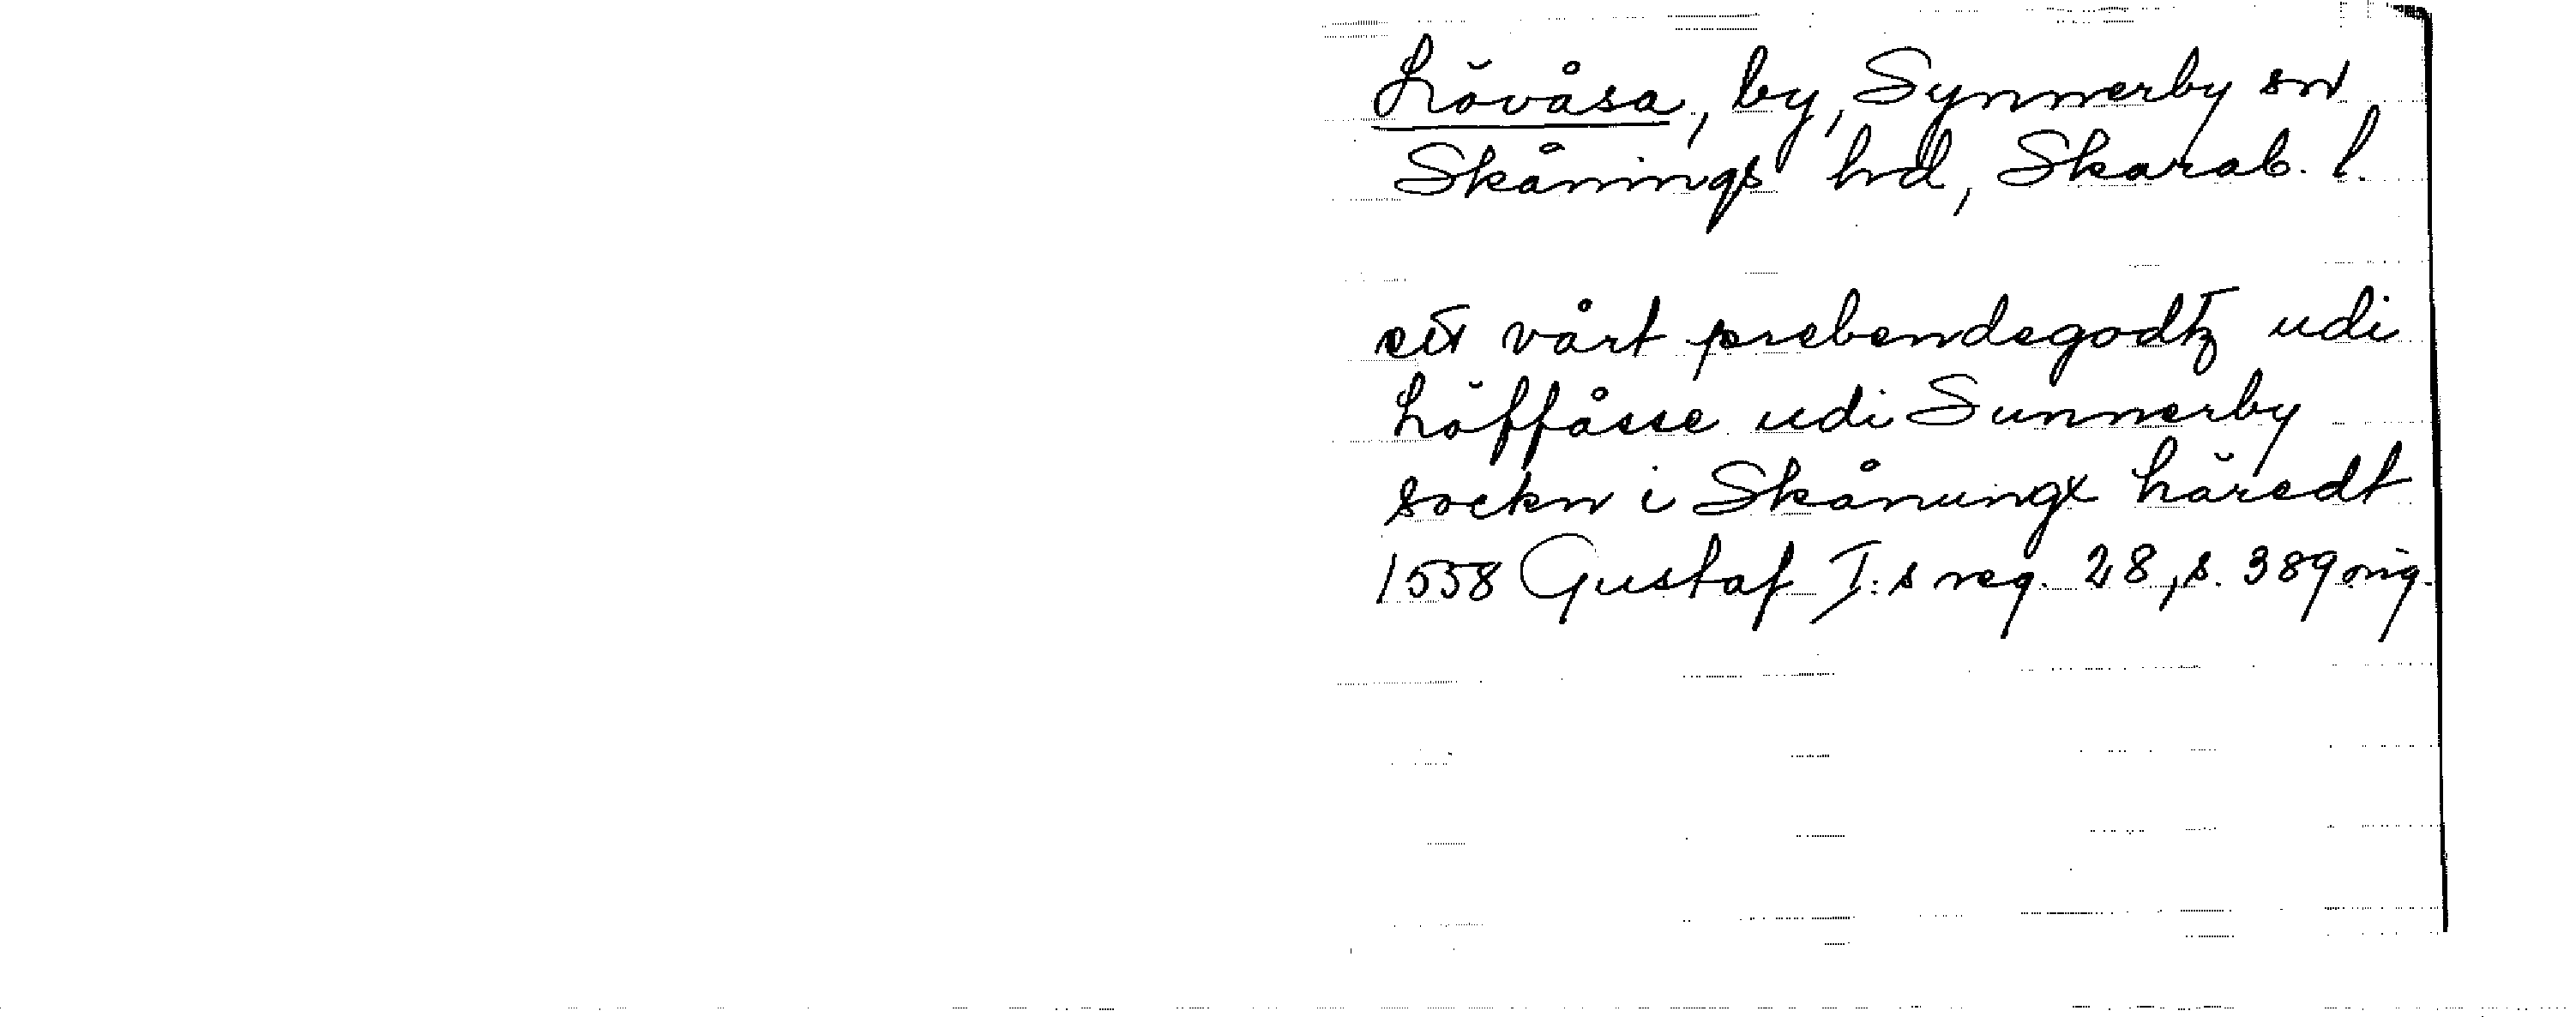 Lövåsa, by, Synnerby sn
Skånings hd, Skarab. l.
ett vårt prebendegodtz udi
Löffåsse udi Sunnerby
sockn i Skånungx häredt
1558 Gustaf I:s reg. 28, s. 389 orig.